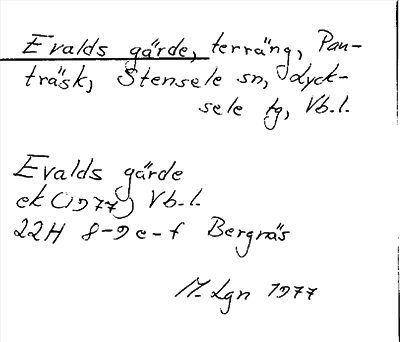 Evalds gärde, terräng, Pau-
träsk, Stensele sn, Lyck-
sele tg, Vb.l.
Evalds gärde
ek (1977) Vb.l.
22H 8-9e-f Bergnäs
M. Lgn 1977